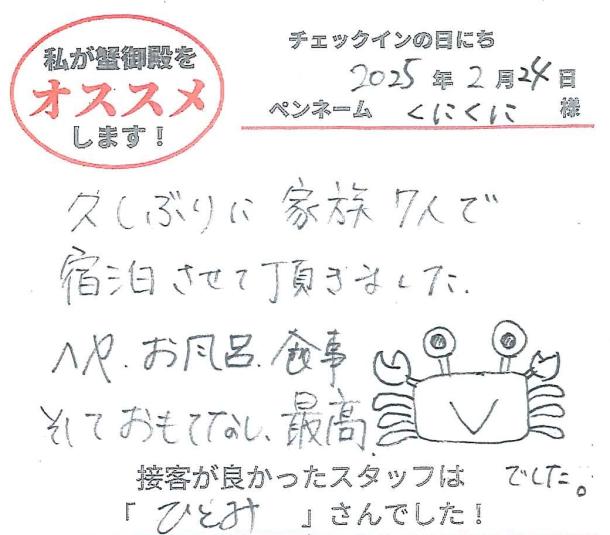 私が蟹御殿を
オススメ
します！
チェックインの日にち
2025年2月24日
ペンネーム くにくに 様
久しぶりに家族7人で
宿泊させて頂きました.
ヘヤ.お風呂.食事
そしておもてなし、最高
でした。
接客が良かったスタッフは
「ひとみ」さんでした！